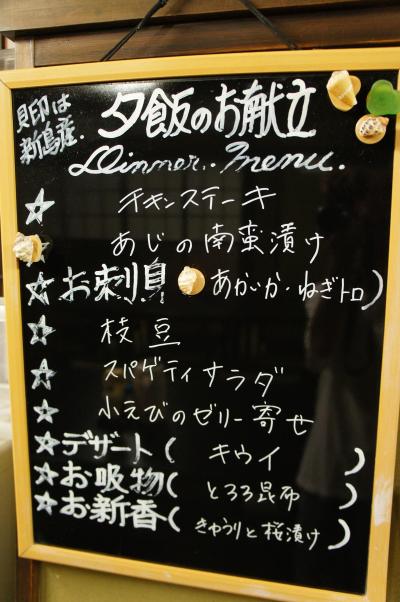 貝印は
新島産.
夕飯のお献立
Dinner. menu.
☆ チキンステーキ
あじの南蛮漬け
☆ お刺身 あかいか・ねぎトロ)
☆ 枝豆
☆ スパゲティサラダ
☆ 小えびのゼリー寄せ
☆ デザート( キウイ )
☆ お吸物( とろろ昆布 )
☆ お新香( きゅうりと桜漬け )